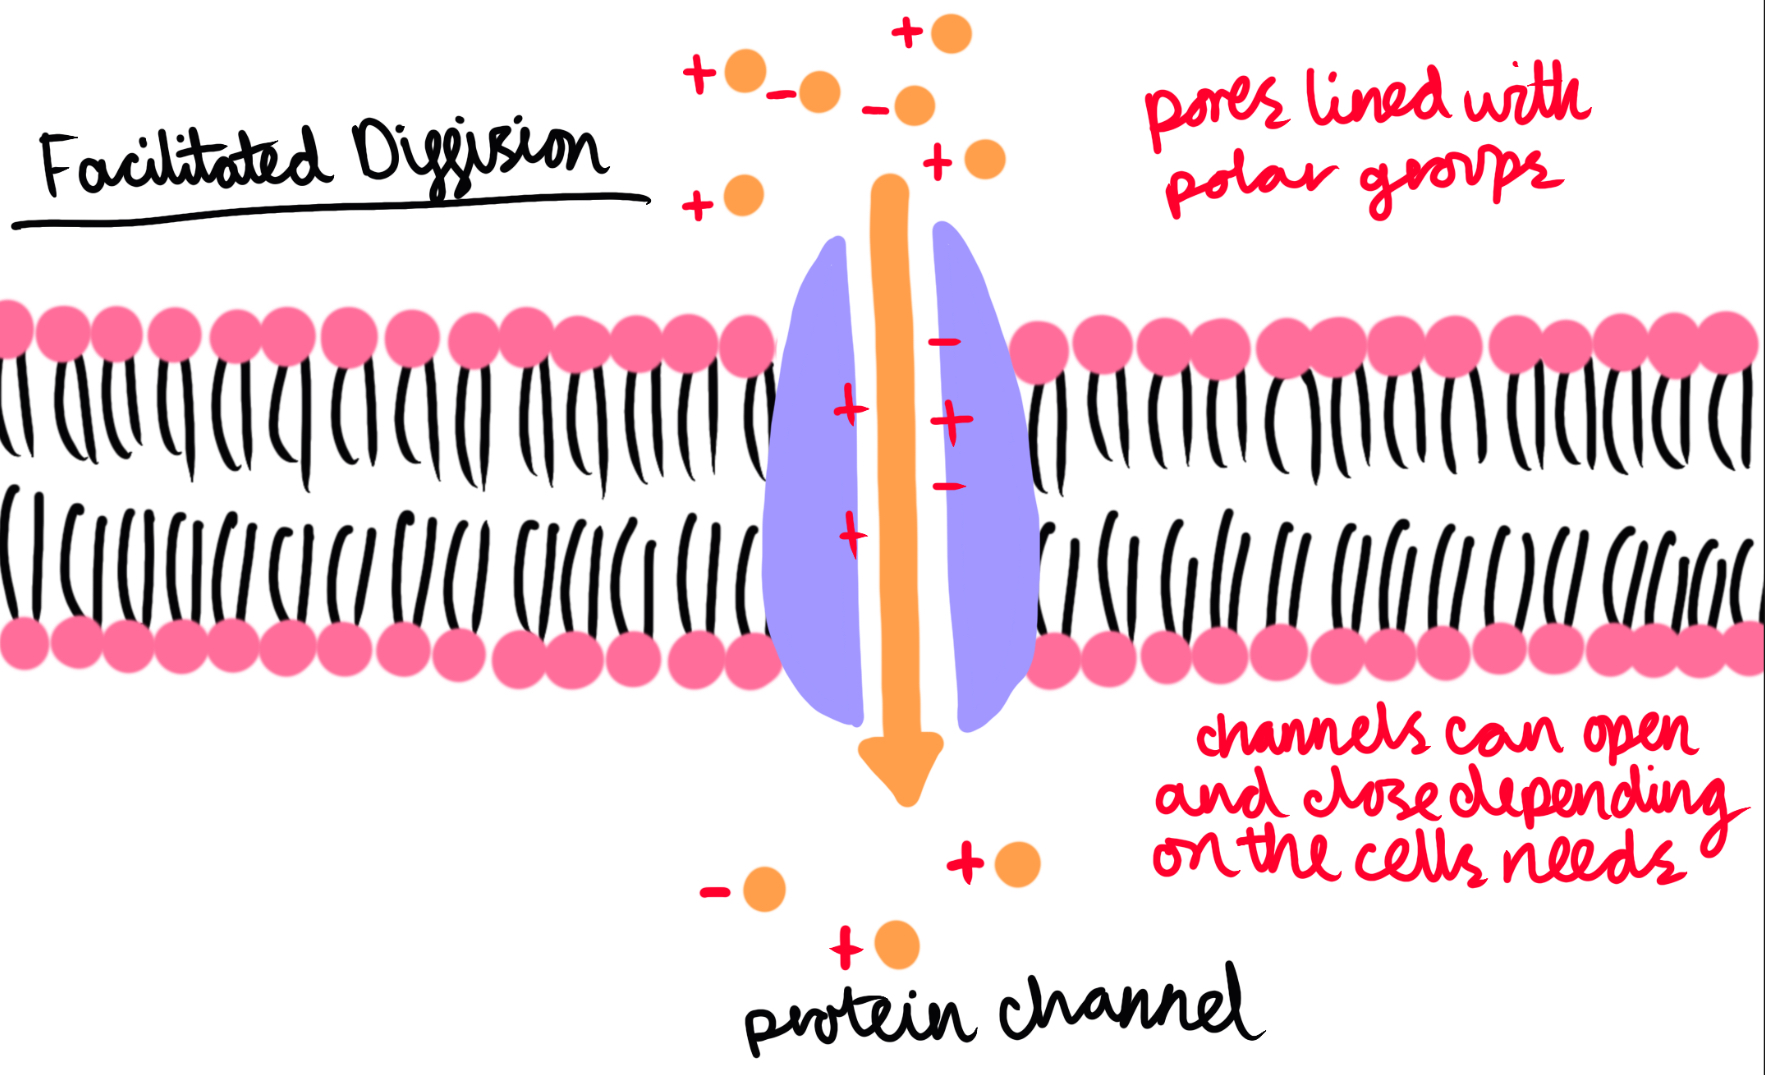 Facilitated Diffision
pores lined with
polar groups
channels can open
and close depending
on the cells needs
protein channel